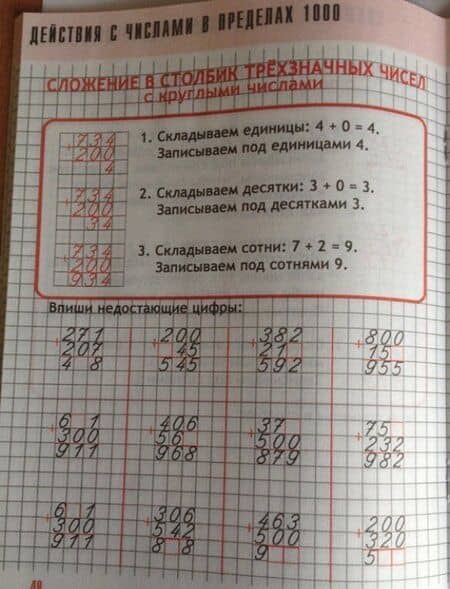 ДЕЙСТВИЯ С ЧИСЛАМИ В ПРЕДЕЛАХ 1000
СЛОЖЕНИЕ В СТОЛБИК ТРЁХЗНАЧНЫХ ЧИСЕЛ
с круглыми числами
+734
200
4
1. Складываем единицы: 4 + 0 = 4.
Записываем под единицами 4.
+734
200
34
2. Складываем десятки: 3 + 0 = 3.
Записываем под десятками 3.
+734
200
934
3. Складываем сотни: 7 + 2 = 9.
Записываем под сотнями 9.
Впиши недостающие цифры:
+271 +200 +382 +800
207 45 21 15
4 8 545 592 955
+6 1 +406 +37 +75
300 56 500 232
911 968 879 982
+6 1 +306 +463 +200
300 542 500 320
911 8 8 9 5